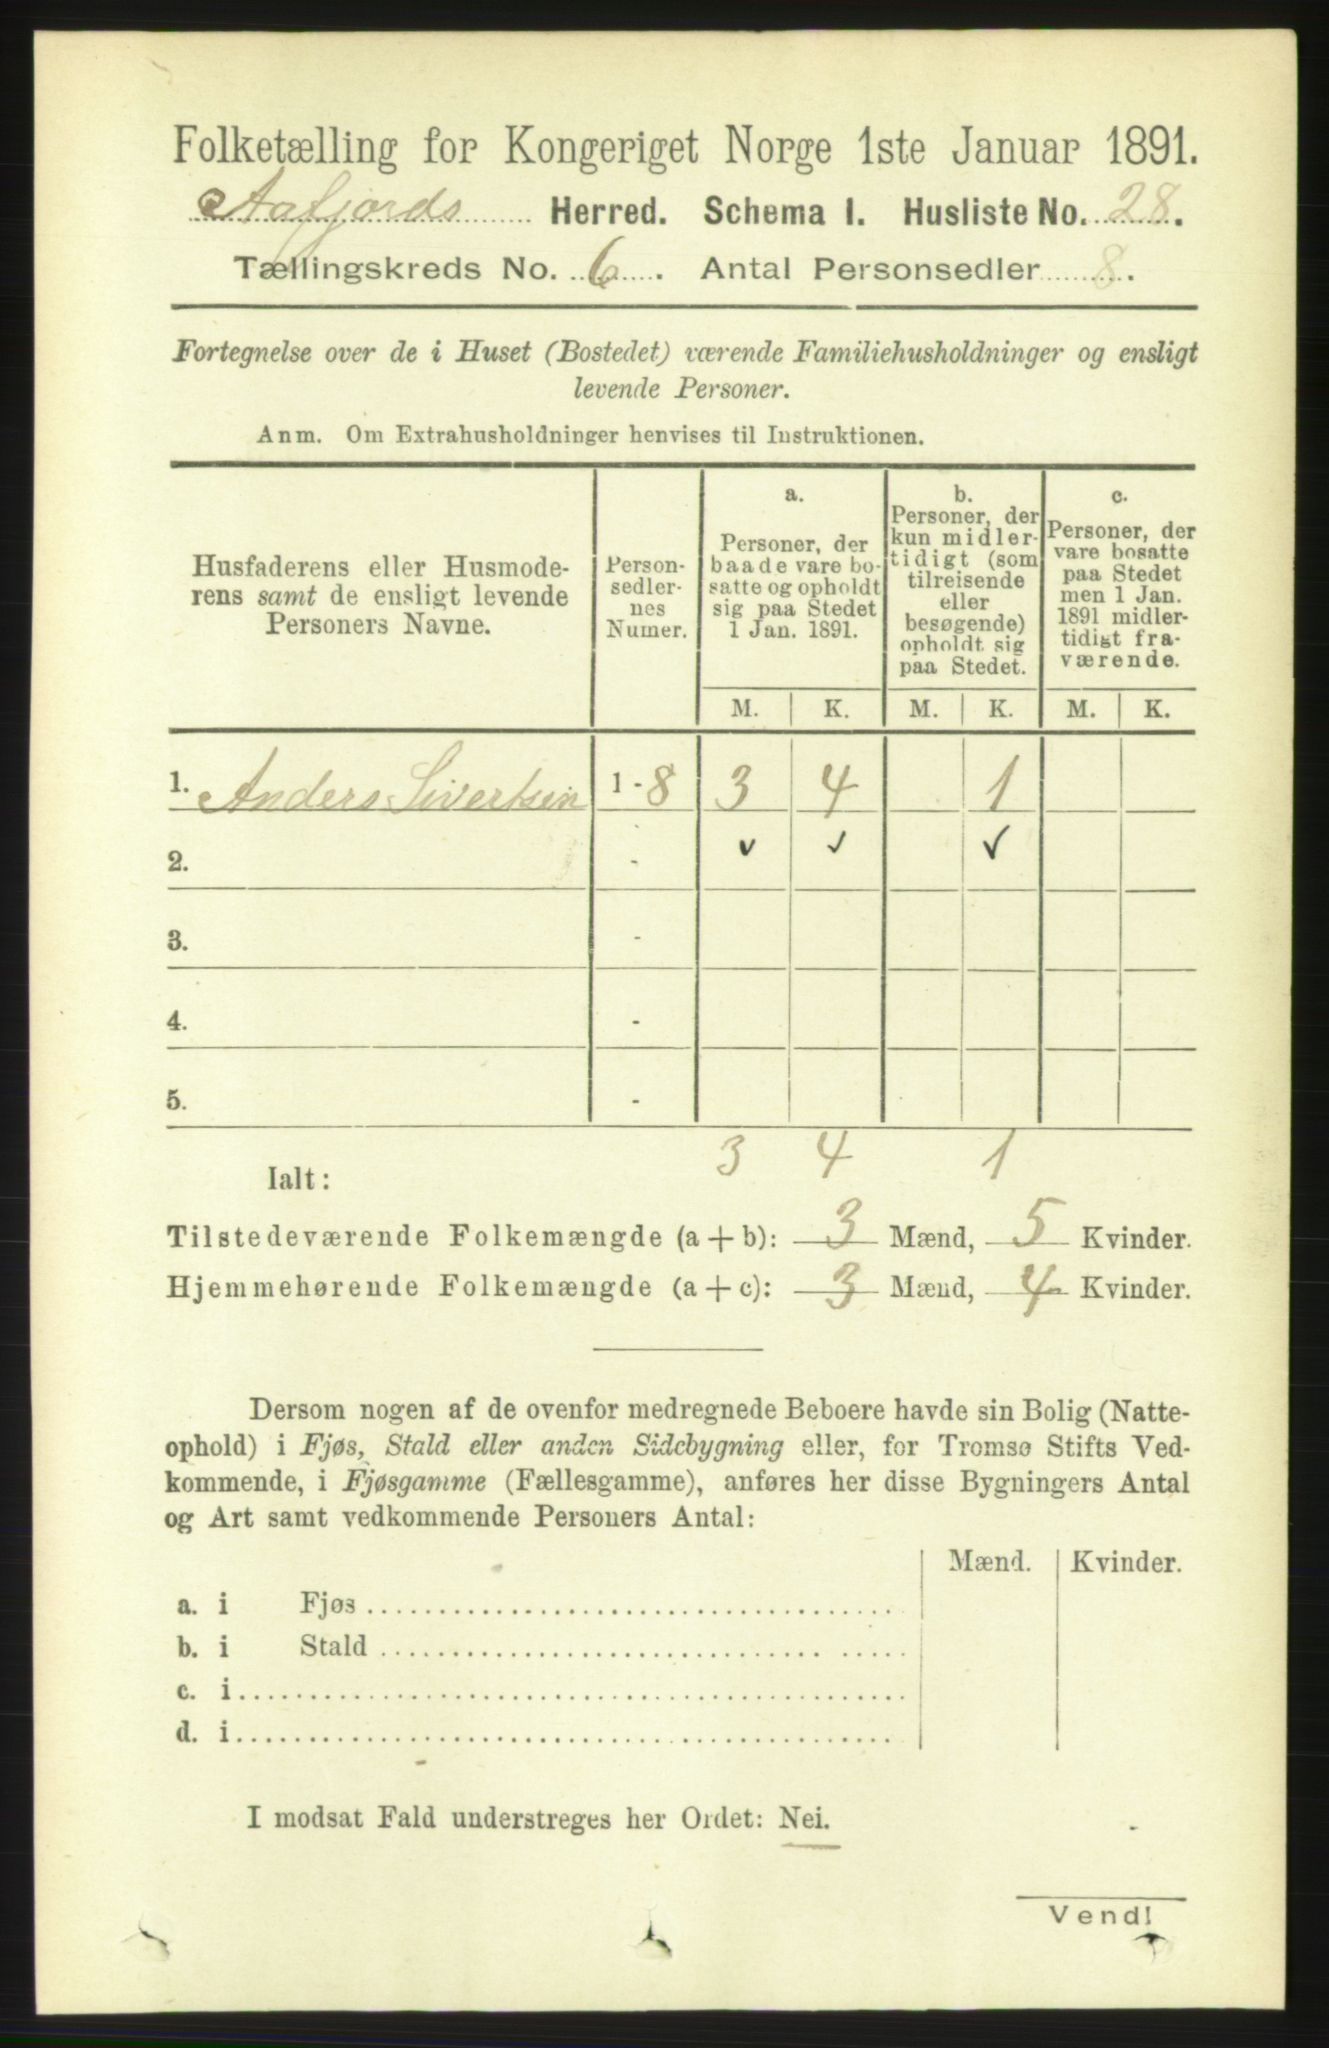 Folketælling for Kongeriget Norge 1ste Januar 1891.
Aafjords Herred. Schema I. Husliste No. 28.
Tællingskreds No. 6. Antal Personsedler 8.
Fortegnelse over de i Huset (Bostedet) værende Familiehusholdninger og ensligt
levende Personer.
Anm. Om Extrahusholdninger henvises til Instruktionen.
Husfaderens eller Husmode-
rens samt de ensligt levende
Personers Navne.
Person-
sedler-
nes
Numer.
a.
Personer, der
baade vare bo-
satte og opholdt
sig paa Stedet
1 Jan. 1891.
b.
Personer, der
kun midler-
tidigt (som
tilreisende
eller
besøgende)
opholdt sig
paa Stedet.
c.
Personer, der
vare bosatte
paa Stedet
men 1 Jan.
1891 midler-
tidigt fra-
værende.
M. K. M. K. M. K.
1. Anders Sivertsen 1 - 8 3 4 1
2. - ✓ ✓ ✓
3. -
4. -
5. -
Ialt: 3 4 1
Tilstedeværende Folkemængde (a + b): 3 Mænd, 5 Kvinder.
Hjemmehørende Folkemængde (a + c): 3 Mænd, 4 Kvinder.
Dersom nogen af de ovenfor medregnede Beboere havde sin Bolig (Natte-
ophold) i Fjøs, Stald eller anden Sidebygning eller, for Tromsø Stifts Ved-
kommende, i Fjøsgamme (Fællesgamme), anføres her disse Bygningers Antal
og Art samt vedkommende Personers Antal:
Mænd. Kvinder.
a. i Fjøs
b. i Stald
c. i
d. i
I modsat Fald understreges her Ordet: Nei.
Vend!